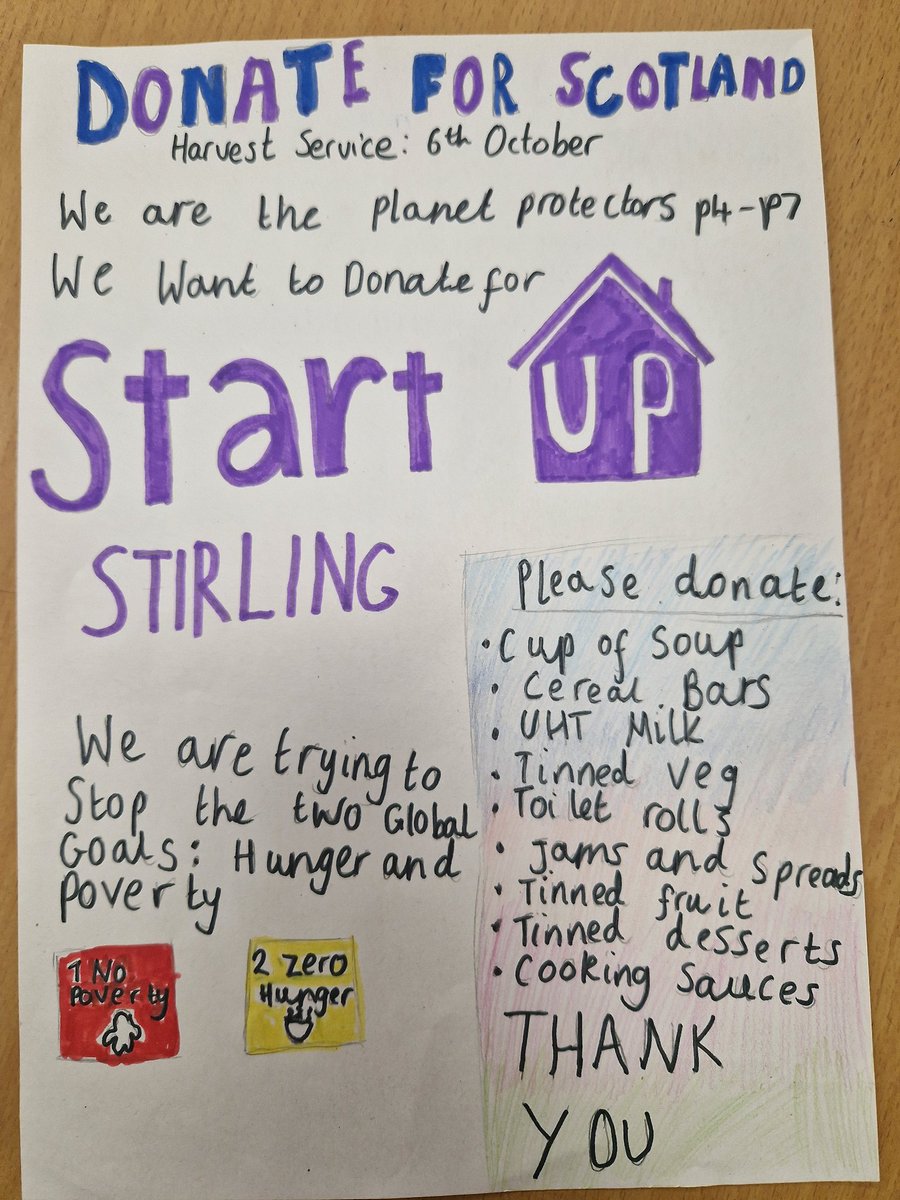 DONATE FOR SCOTLAND
Harvest Service: 6th October
We are the planet protectors p4-p7
We Want to Donate for
Start UP
STIRLING
We are trying to
Stop the two Global
Goals: Hunger and
poverty
1 No
Poverty
2 Zero
Hunger
Please donate:
• Cup of Soup
• Cereal Bars
• UHT Milk
• Tinned veg
• Toilet rolls
• Jams and Spreads
• Tinned fruit
• Tinned desserts
• Cooking Sauces
THANK
YOU